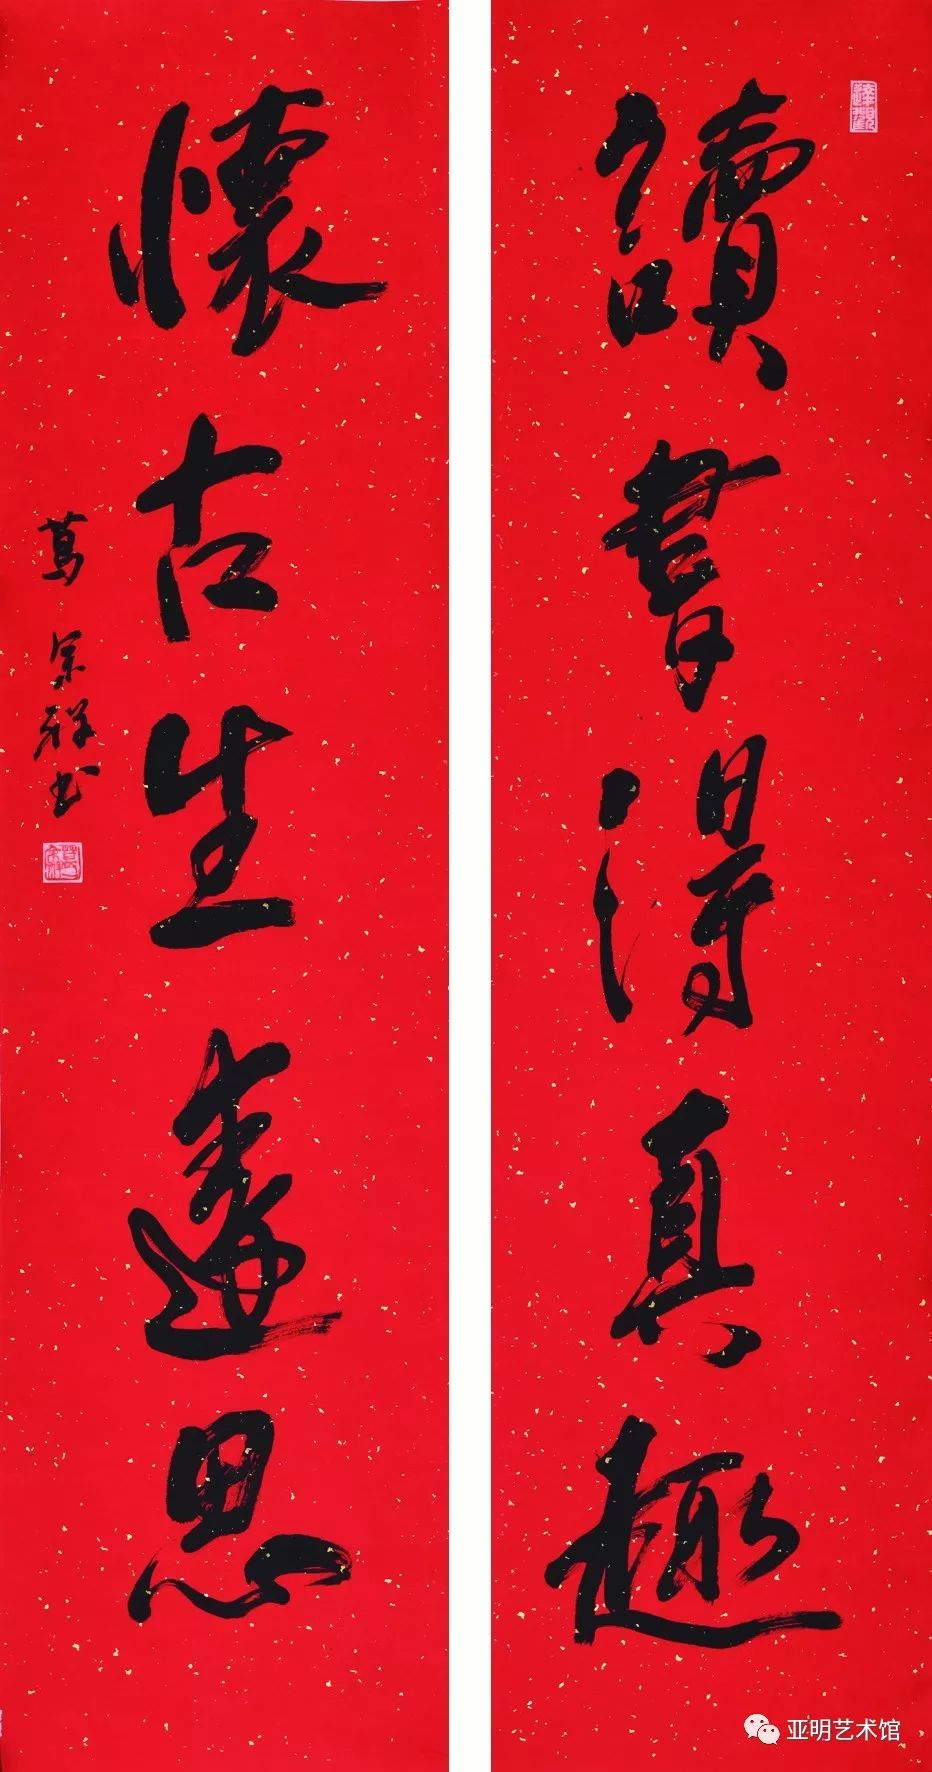 讀書得真趣
懷古生遠思
葛宗祥书
達觀
亚明艺术馆